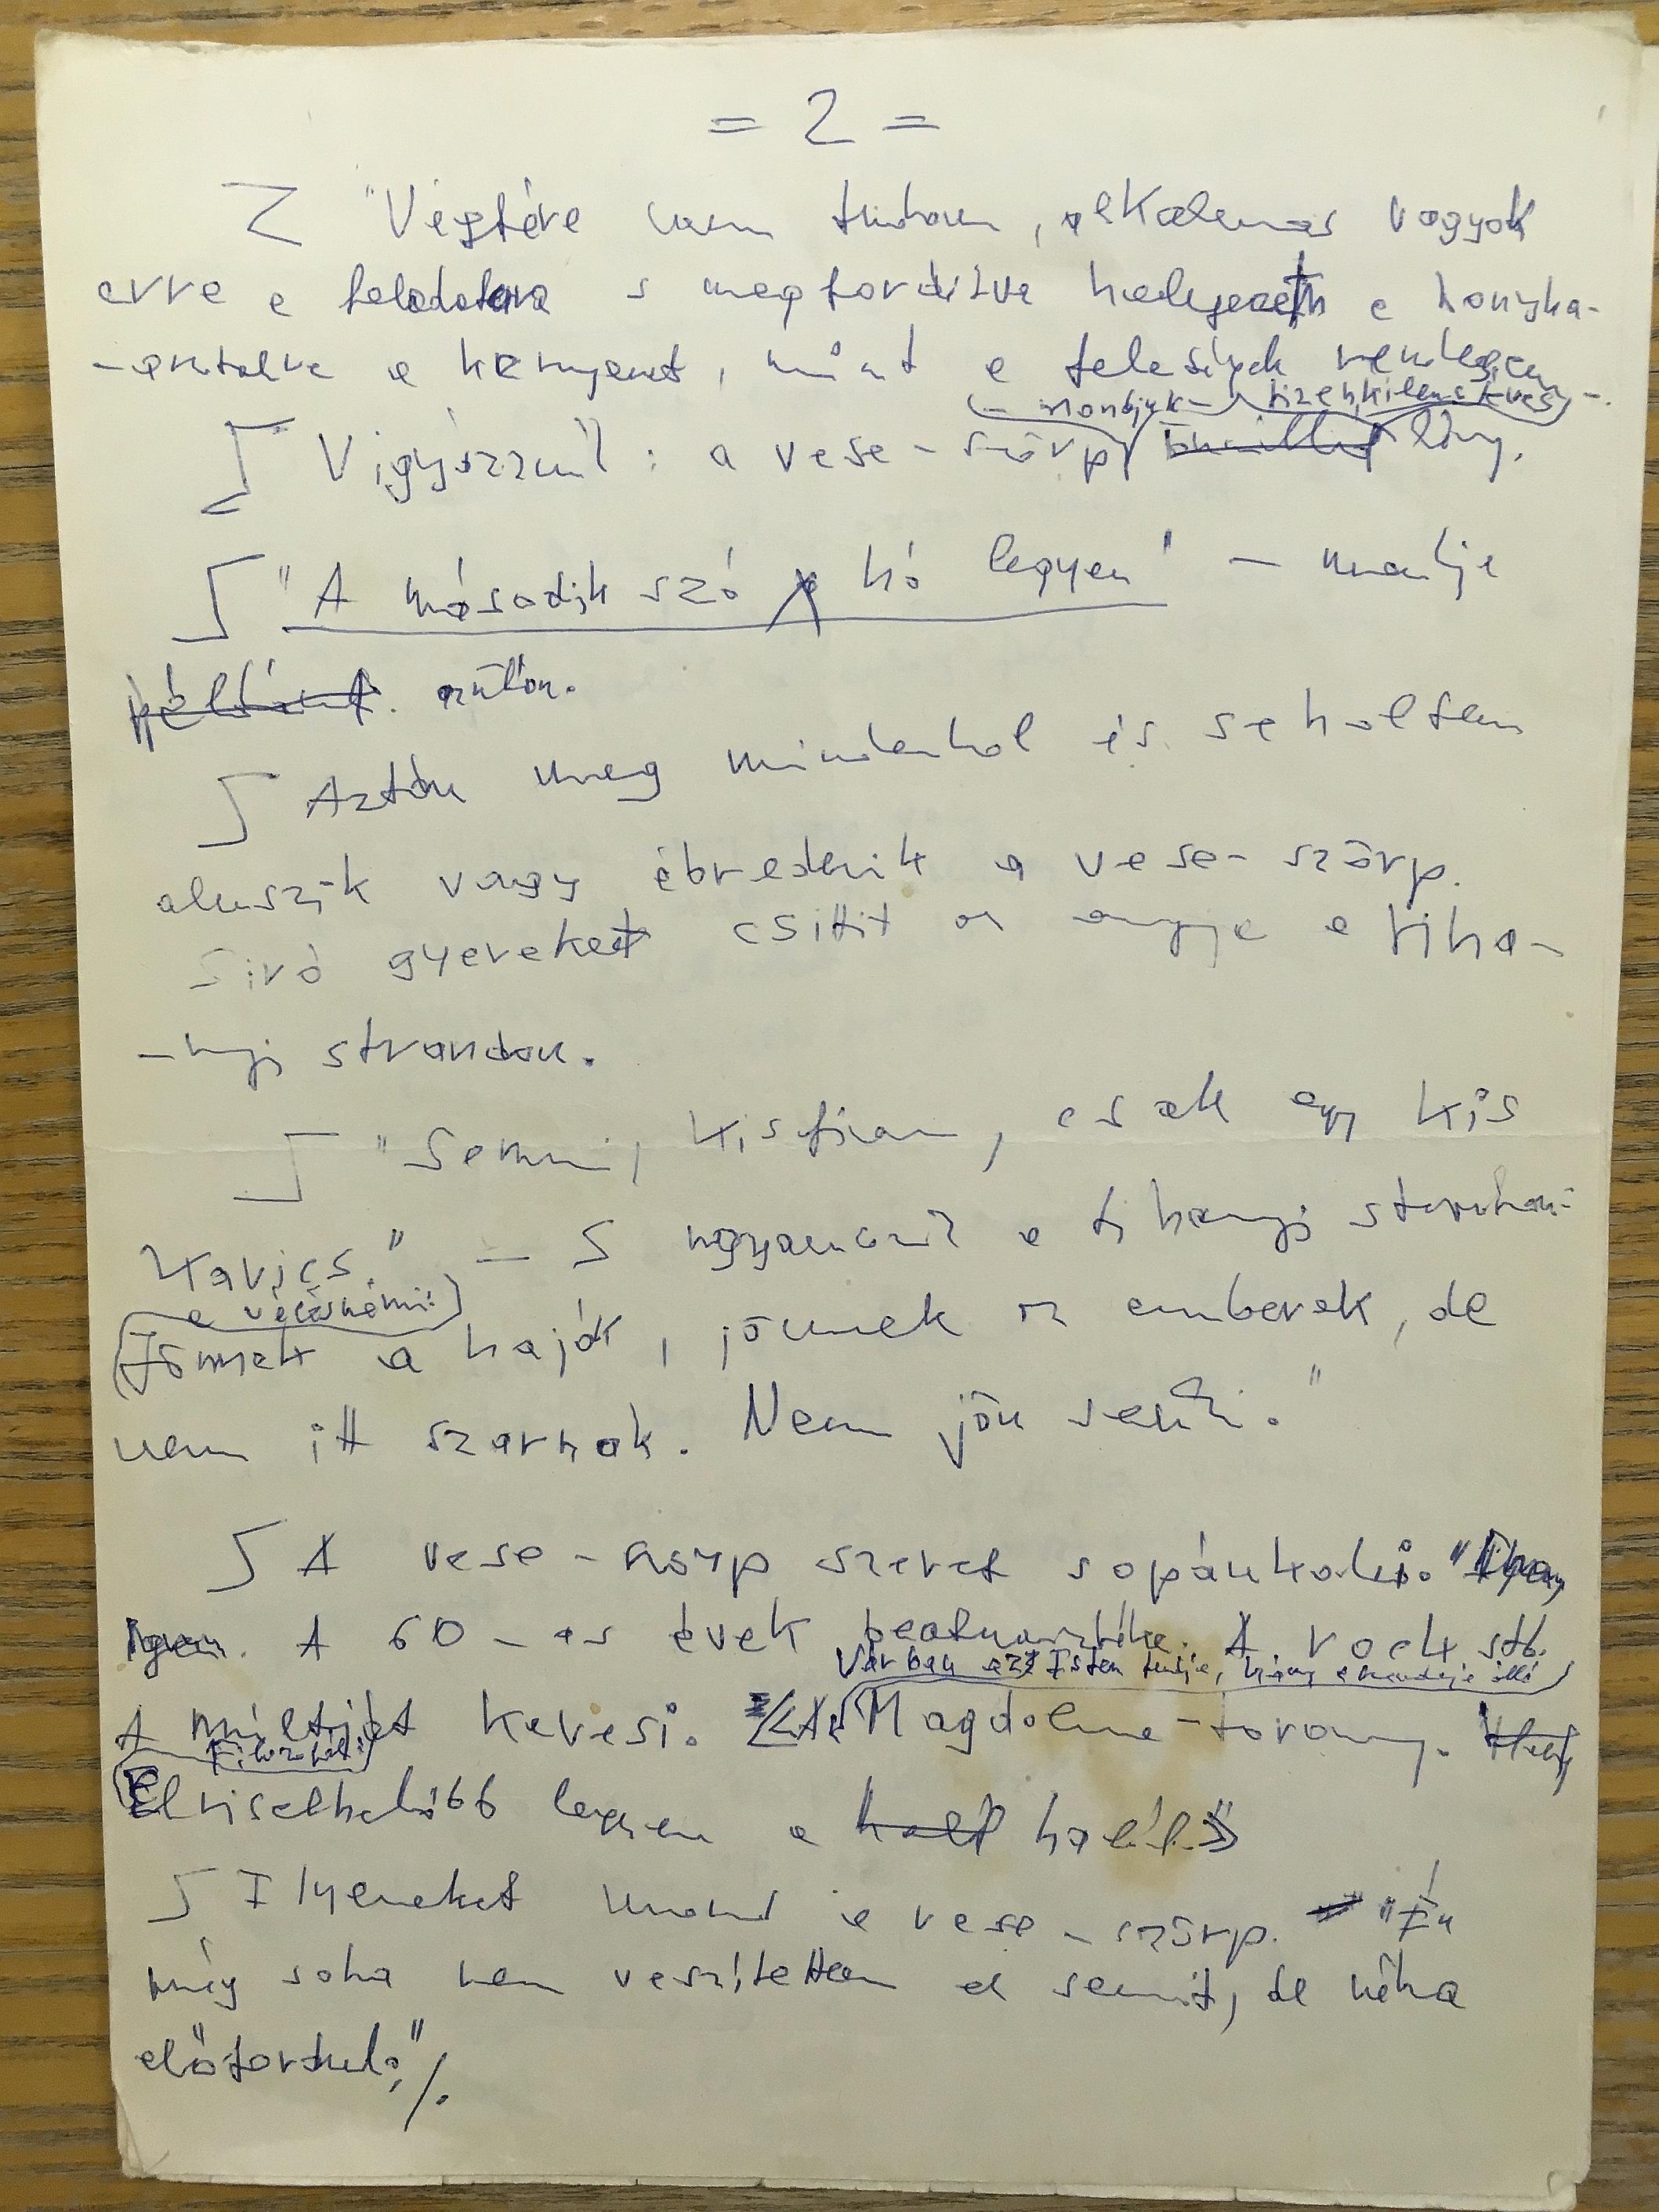 = 2 =
"Végtére nem tudom, alkalmas vagyok
erre a feladatra s megfordítva helyezem a konyha-
-asztalra a kenyeret, mint a feleségek rendesen
– mondjuk – tizenkilenc éves –.
Vigyázzunk: a vese-szörp lány.
"A második szó a hó legyen" – mondja
például. 
Aztán meg mindenhol és sehol sem
aluszik vagy ébredezik a vese-szörp.
Síró gyereket csitít az anyja a tiha-
-nyi strandon.
"Semmi, kisfiam, csak egy kis
kavics." – S ugyanonnan a tihanyi strandon:
Jönnek a hajók, jönnek az emberek, de
nem itt szarnak. Nem jön senki."
A vese-szörp szeret sopánkodni. "
Igen. A 60-as évek beatnemzedéke. A rock stb.
Várban az Isten tudja, hány emeletje álló
A múltját keresi. Magdolna-torony.
Elviselhetőbb legyen a halál"
Ilyeneket mond a vese-szörp. "Én
még soha nem veszítettem el semmit, de néha
előfordul." /.